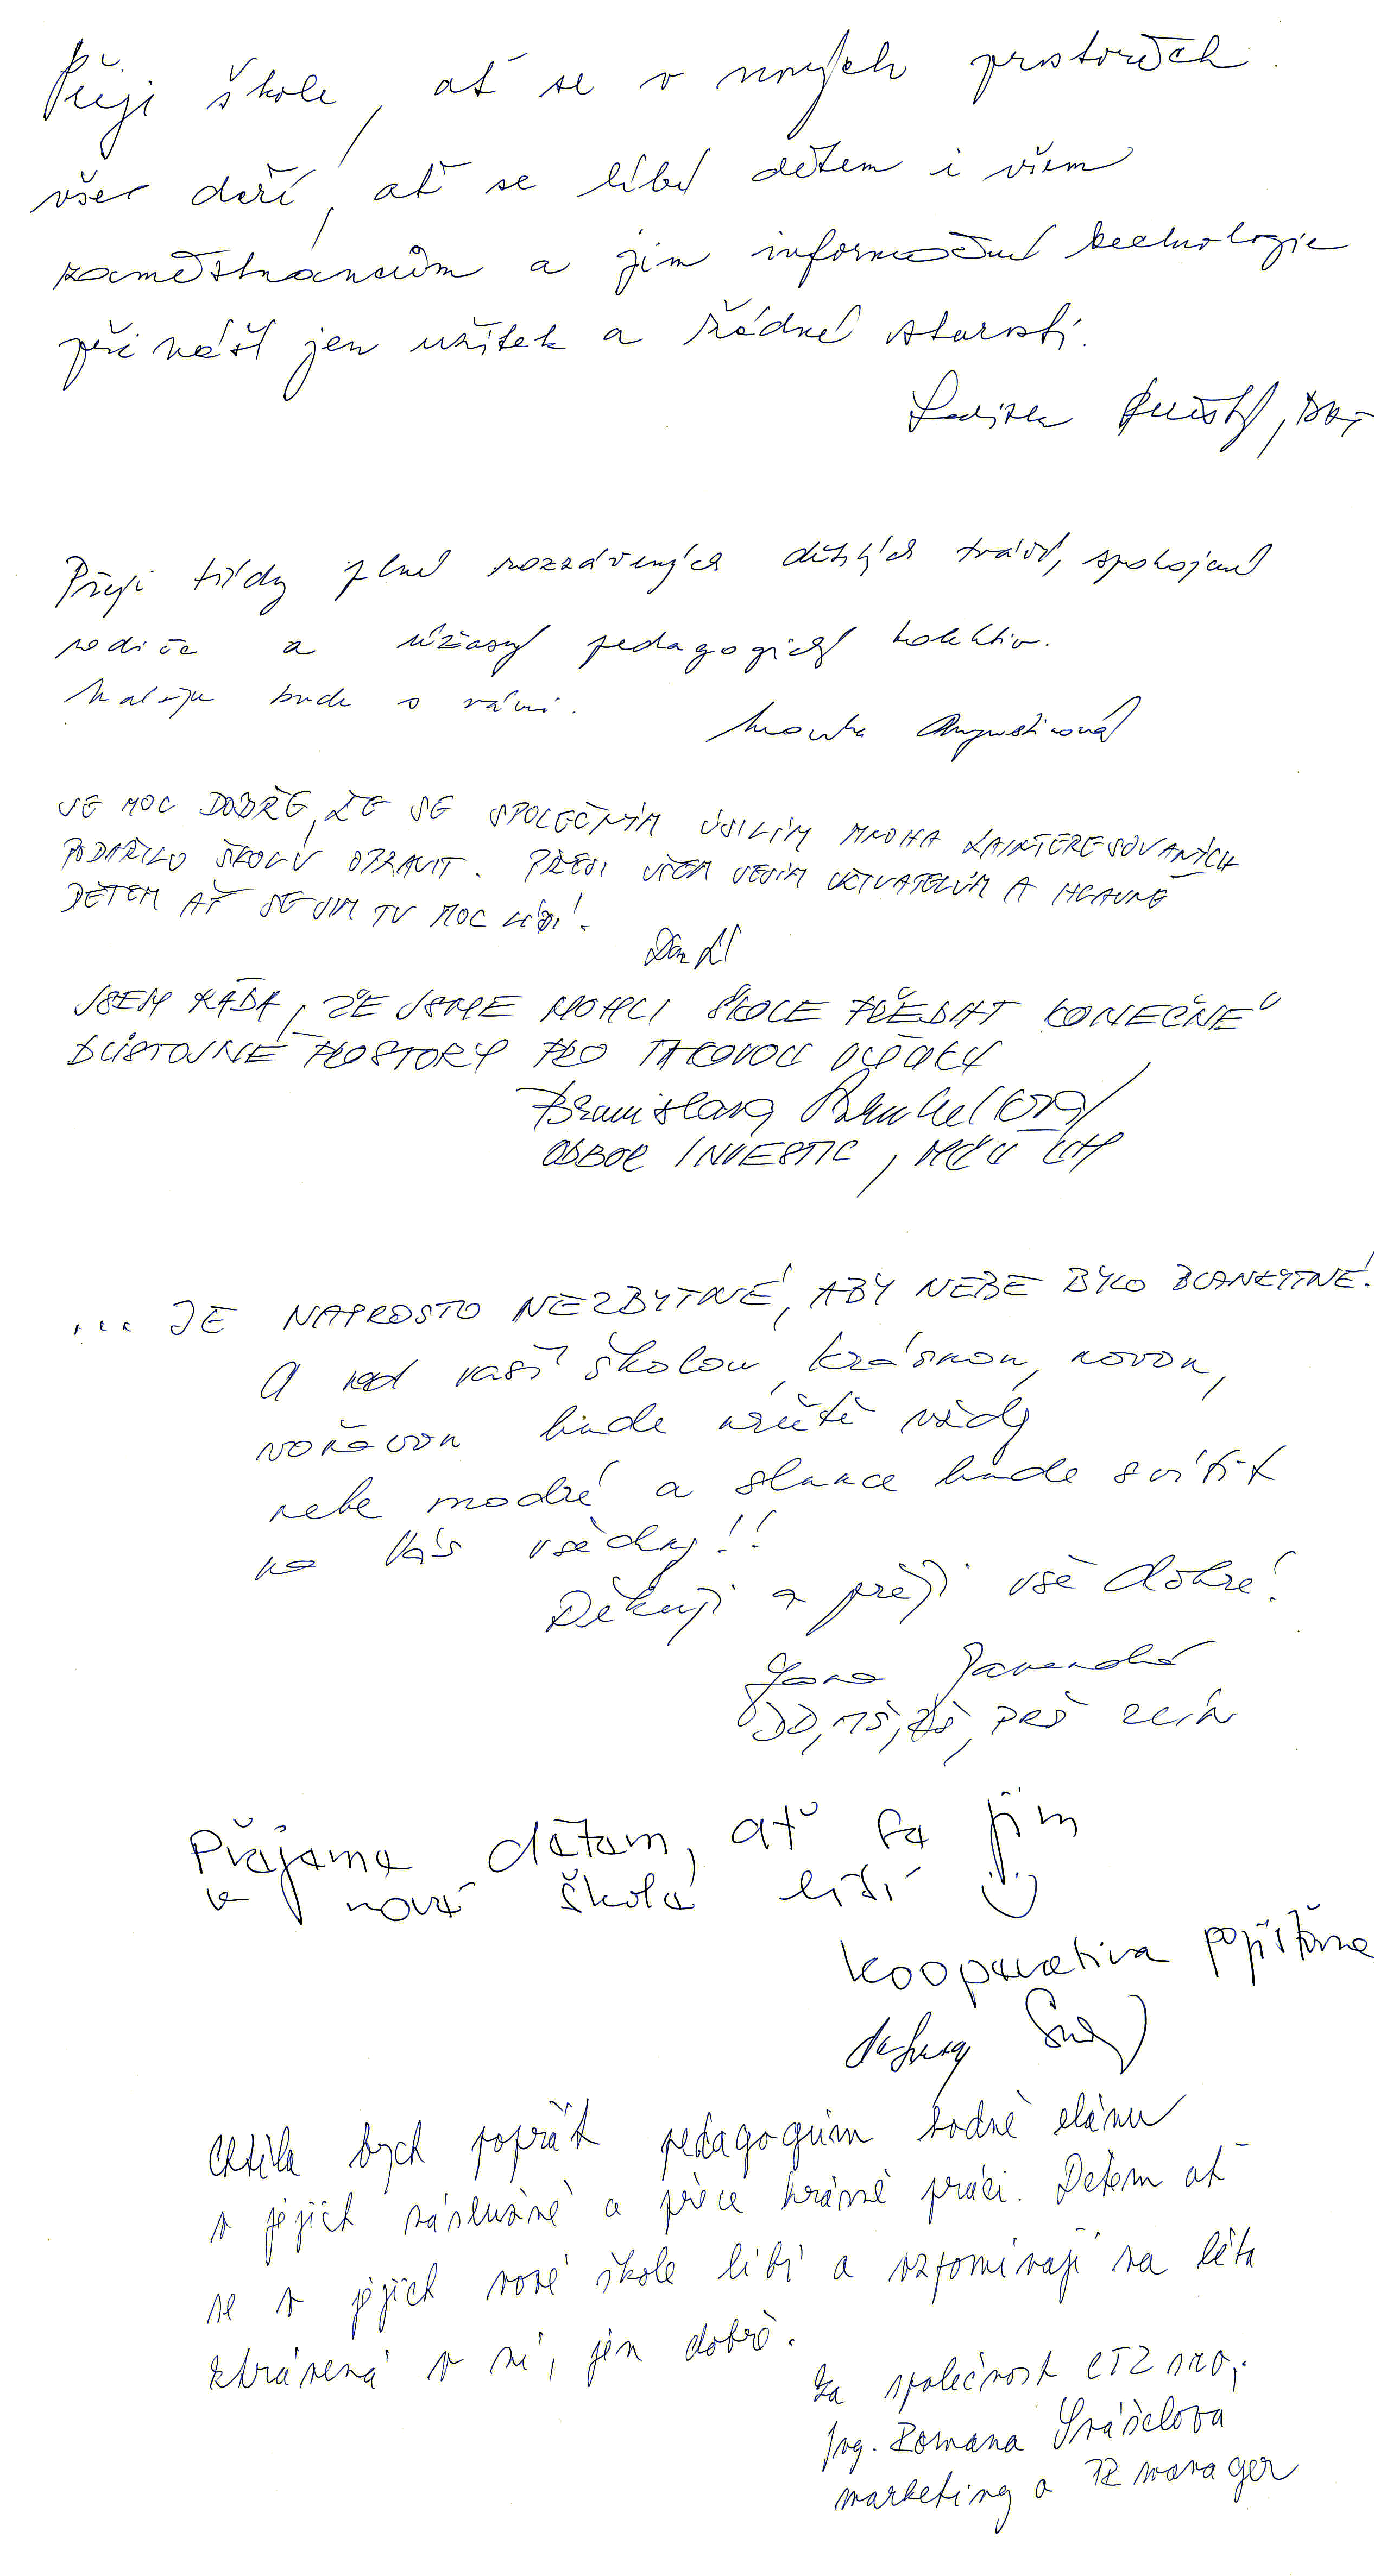 Přeji škole, ať se v nových prostorách
vše daří, ať se líbí dětem i všem
zaměstnancům a jim informační technologie
přináší jen užitek a žádné starosti.
Přeji třídy plné rozzářených dětských tváří, spokojené
rodiče a úžasný pedagogický kolektiv.
Naděje bude s vámi.
Augustinová
JE MOC DOBŘE, ŽE SE SPOLEČNÝM ÚSILÍM MNOHA ZAINTERESOVANÝCH
PODAŘILO ŠKOLU OPRAVIT. PŘEJI VŠEM JEJÍM UŽIVATELŮM A HLAVNĚ
DĚTEM AŤ SE JIM TU MOC LÍBÍ!
JSEM RÁDA, ŽE JSME MOHLI ŠKOLE PŘEDAT KONEČNĚ
DŮSTOJNÉ PROSTORY PRO TAKOVOU VÝUKU
Branislava
ODBOR INVESTIC, MĚÚ UH
... JE NAPROSTO NEZBYTNÉ, ABY NEBE BYLO BLANKYTNÉ!
A nad vaší školou, krásnou, novou,
voňavou bude určitě vždy
nebe modré a slunce bude svítit
na Vás všechny!!
Děkuji a přeji vše dobré!
Jana
DD, MŠ, ZŠ, PRŠ Zlín
Přejeme dětem, ať se jim
v nové škole líbí
Kooperativa pojišťovna
Chtěla bych popřát pedagogům hodně elánu
v jejich záslužné a přece krásné práci. Dětem ať
se v jejich nové škole líbí a vzpomínají na léta
ztrávená v ní, jen dobře.
Za společnost CTZ s.r.o.,
Ing. Romana Strášelova
marketing a PR manager